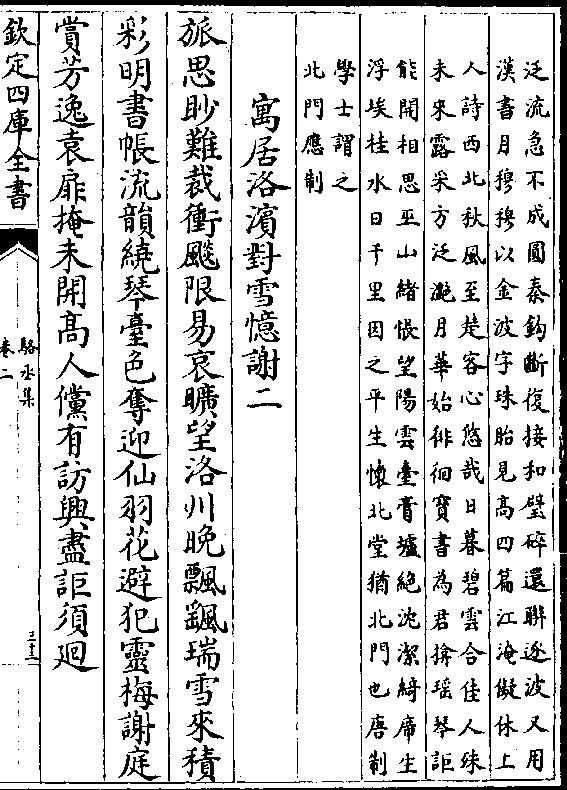 泛流急不成圓秦鈎斷復接和璧碎還聯逐波又用
漢書月穆穆以金波字珠胎見髙四篇江淹儗休上
人詩西北秋風至楚客心悠哉日暮碧雲合佳人殊
未來露采方泛灔月華始徘徊寶書為君掩瑶琴詎
能開相思巫山緒悵望陽雲臺膏壚絶沈潔綺席生
浮埃桂水日千里因之平生懷北堂猶北門也唐制
學士謂之
北門應制
寓居洛濱對雪憶謝二
旅思眇難裁衝飈限易哀曠望洛川晚飄颻瑞雪來積
彩明書帳流韻繞琴臺色奪迎仙羽花避犯靈梅謝庭
賞芳逸袁扉掩未開髙人儻有訪興盡詎須廻
欽定四庫全書
駱丞集
卷二
三十三